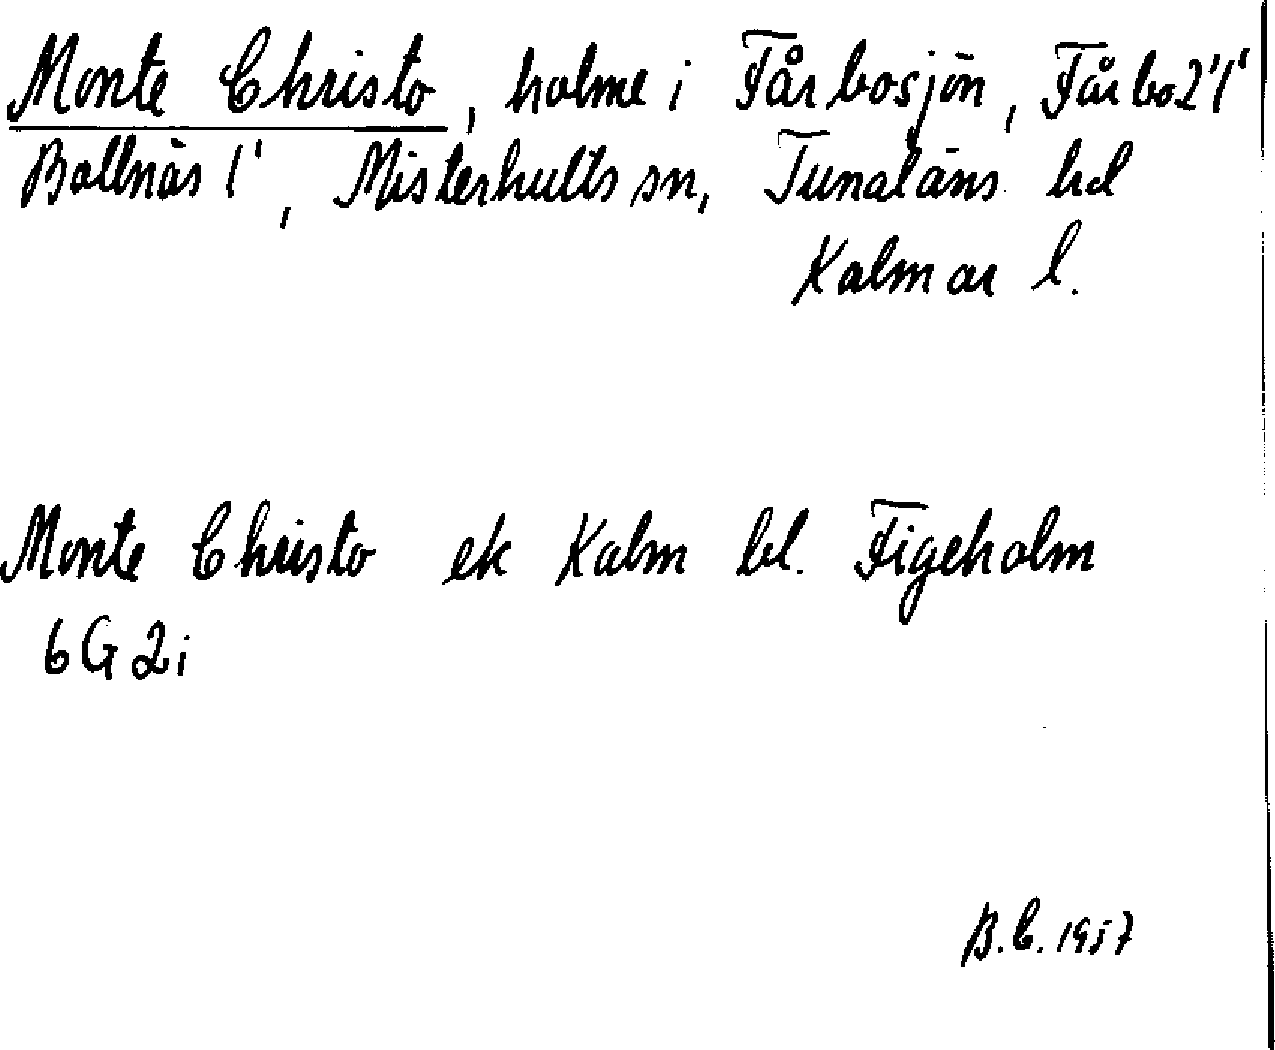 Monte Christo, holme i Fårbosjön, Fårbo 2'1'
Ballnäs 1', Misterhults sn, Tunaläns hd
Kalmar l.
Monte Christo ek Kalm bl. Figeholm
6G 2i
B.C. 1957